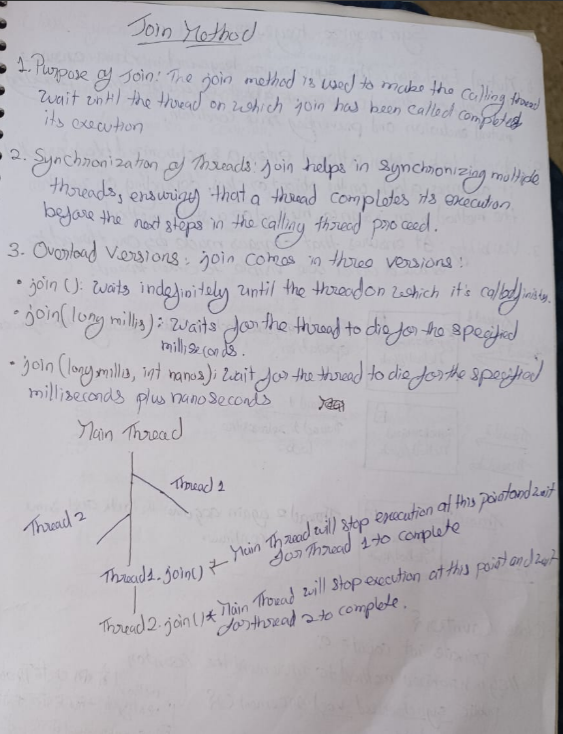 Join Method
1. Purpose of Join: The join method is used to make the calling thread
wait until the thread on which join has been called completes
its execution
2. Synchronization of Threads: join helps in synchronizing multiple
threads, ensuring that a thread completes its execution
before the next steps in the calling thread proceed.
3. Overload Versions: join comes in three versions:
• join(): waits indefinitely until the thread on which it's called finishes.
• join(long millis): waits for the thread to die for the specified
milliseconds.
• join(long millis, int nanos): wait for the thread to die for the specified
milliseconds plus nanoseconds
Main Thread
Thread 1
Thread 2
Thread1.join() ← Main Thread will stop execution at this point and wait
for Thread 1 to complete
Thread2.join() * Main Thread will stop execution at this point and wait
for thread 2 to complete.